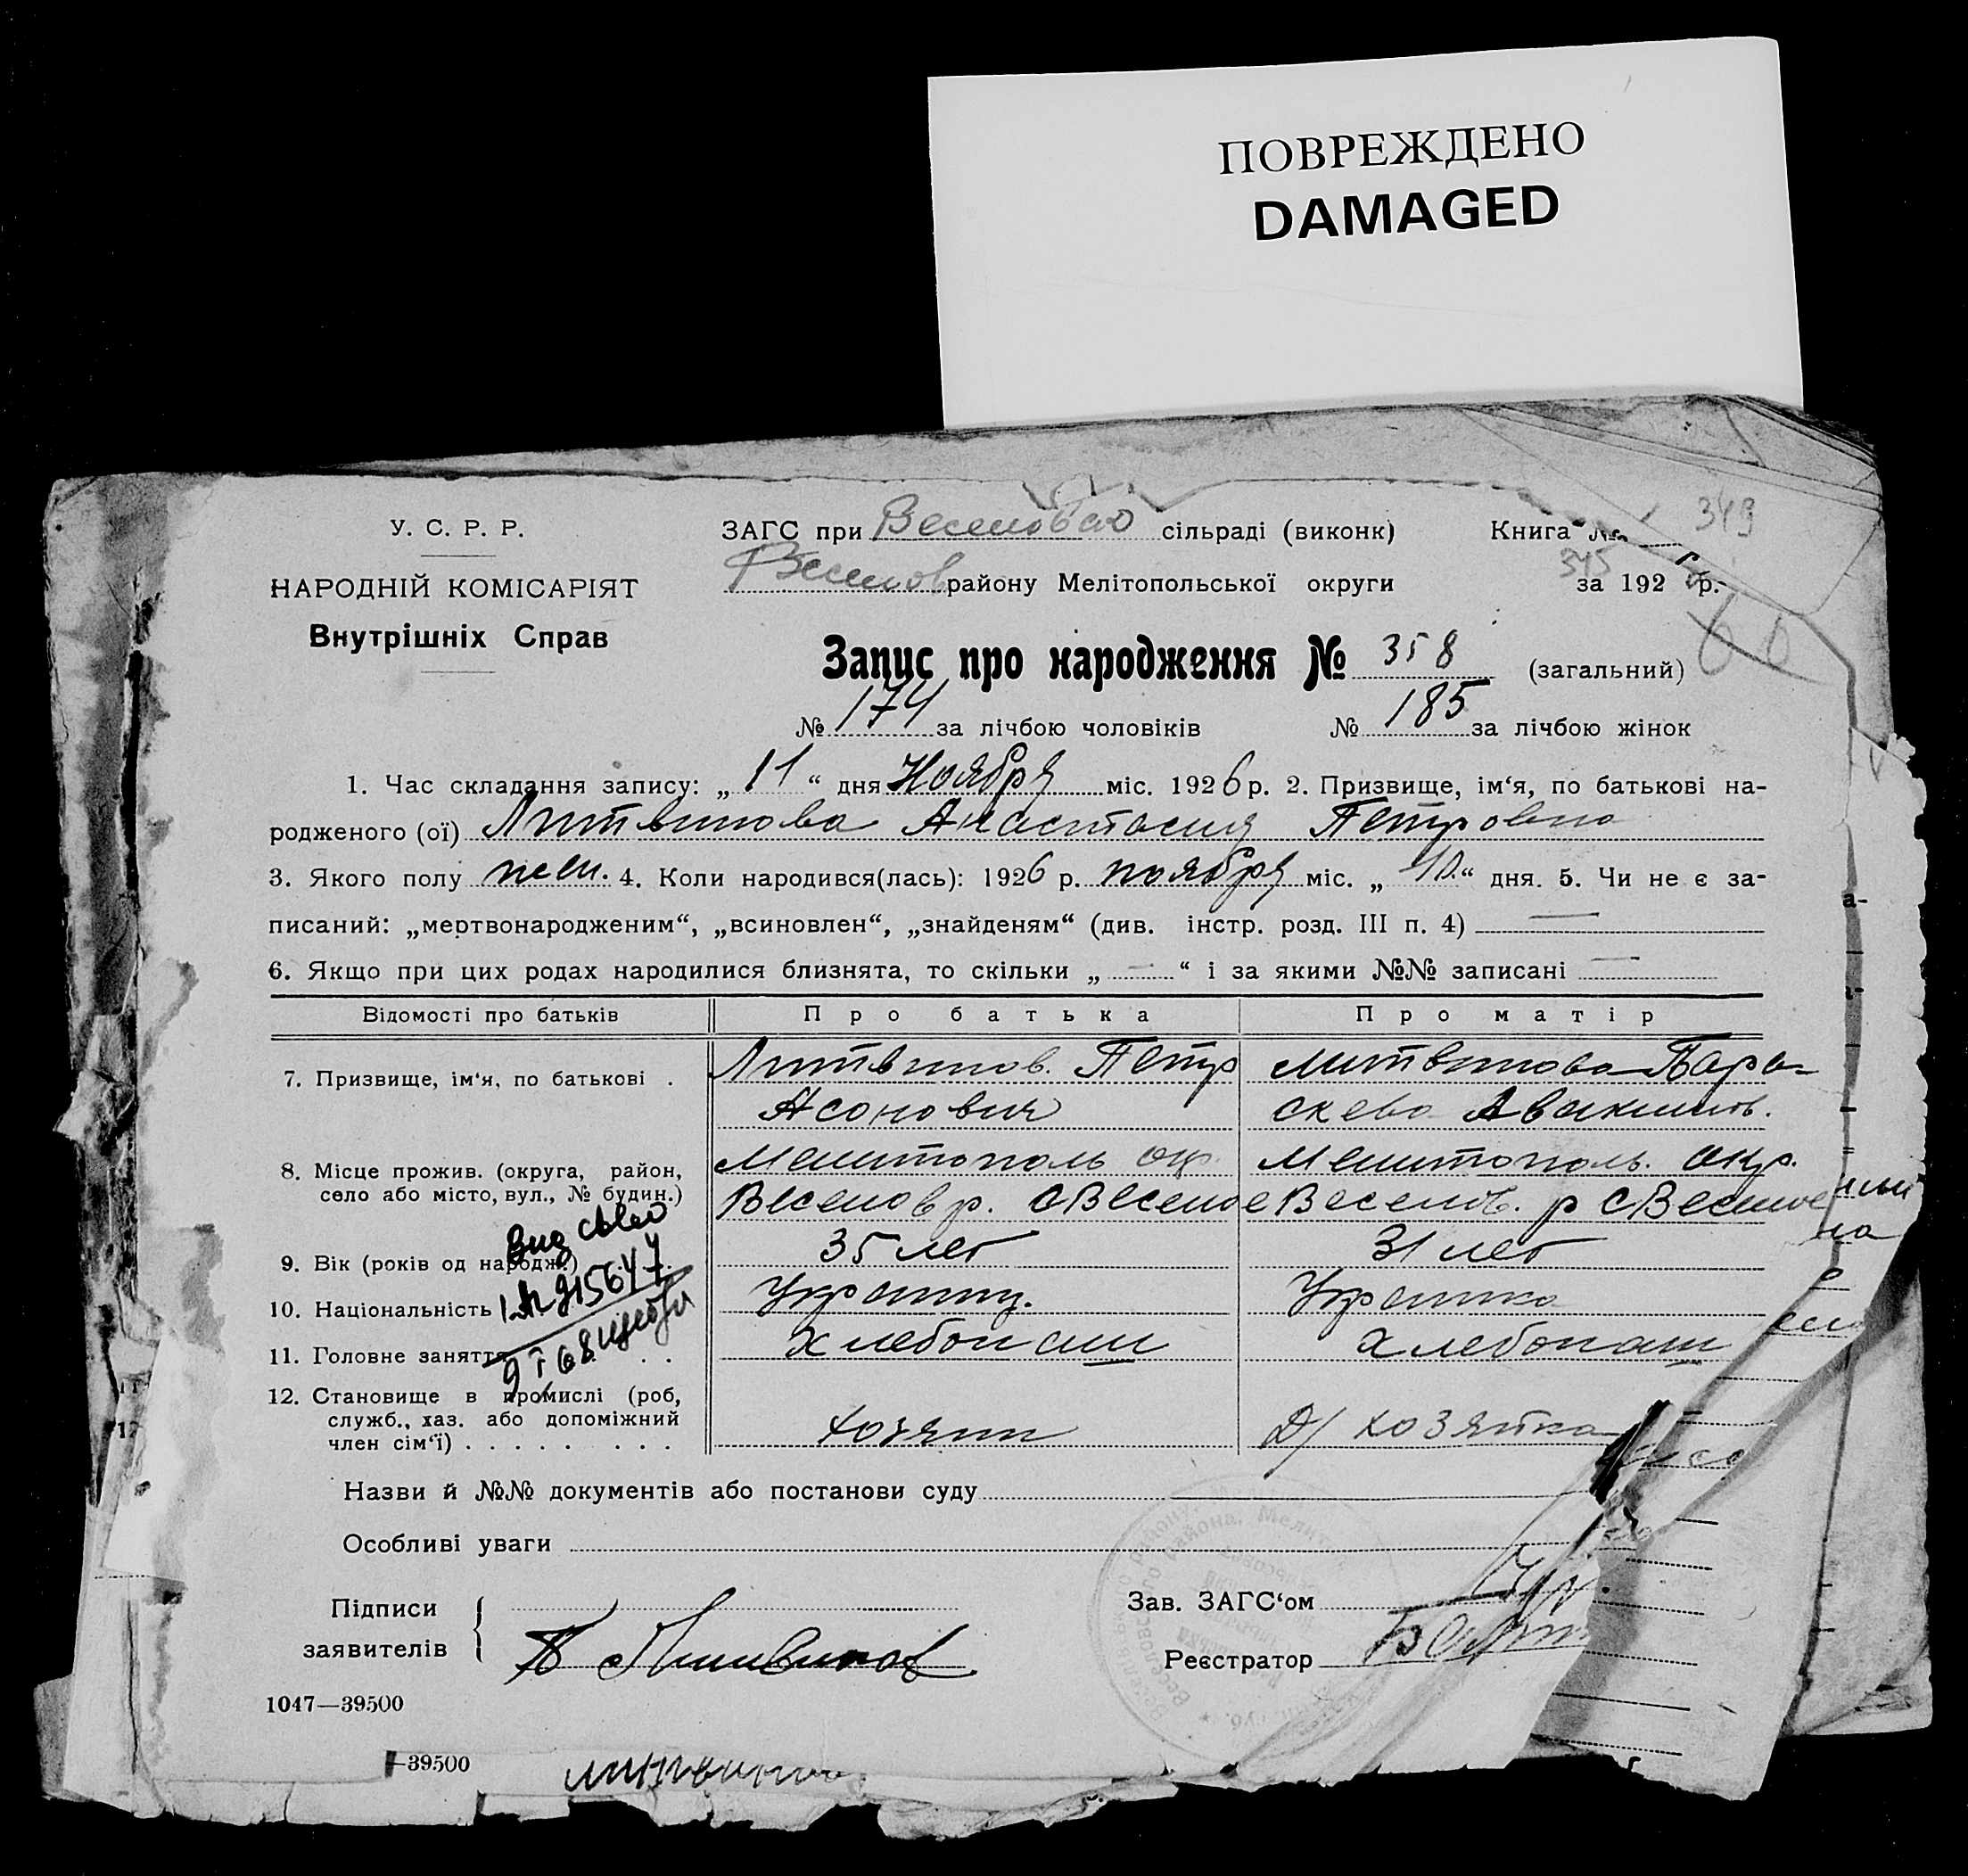 ПОВРЕЖДЕНО
DAMAGED
349
У. С. Р. Р.
НАРОДНІЙ КОМІСАРІЯТ
Внутрішніх Справ
ЗАГС при Веселовско сільраді (виконк)
Книга №
345
Веселов району Мелітопольської округи
за 192 р.
Запис про народження № 358 (загальний)
№ 174 за лічбою чоловіків № 185 за лічбою жінок
1. Час складання запису: „ 11 “ дня Ноября міс. 1926 р. 2. Призвище, ім‘я, по батькові на-
родженого (ої) Литвинова Анастасия Петровна
3. Якого полу жен. 4. Коли народився(лась): 1926 р. ноября міс. „ 10. “ дня. 5. Чи не є за-
писаний: „мертвонародженим“, „всиновлен“, „знайденям“ (див. інстр. розд. III п. 4) —
6. Якщо при цих родах народилися близнята, то скільки „ — “ і за якими №№ записані —
Відомості про батьків Про батька Про матір
7. Призвище, ім‘я, по батькові . Литвинов. Петр Литвинова Пара-
Асонович скева Авакимов.
8. Місце прожив. (округа, район, Мелитополь окр. Мелитополь. окр.
село або місто, вул., № будин.) Веселов р. с Веселое Веселов. р с Веселое
Выд св-во
9. Вік (років од народж.) 35 лет 31 лет
915647
10. Національність Украинц. Украинка
11. Головне заняття . . Хлебопаш Хлебопаш
12. Становище в промислі (роб,
служб., хаз. або допоміжний
член сім‘ї) . . . . . . . . . хозяин д/ хозяйка
Назви й №№ документів або постанови суду
Особливі уваги
Підписи
заявителів
П Литвинов
Зав. ЗАГС‘ом
Реєстратор
1047—39500
—39500